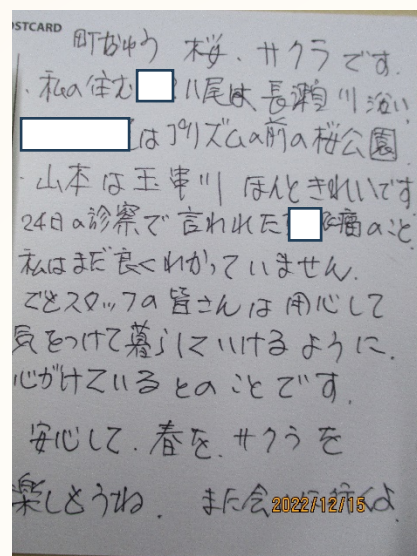 POSTCARD
町ぢゅう 桜、サクラです。
・私の住む 八尾は、長瀬川沿い、
はプリズムの前の桜公園
・山本は玉串川 ほんときれいです
24日の診察で言われた 痛のこと
私はまだ良くわかっていません。
でもスタッフの皆さんは用心して
気をつけて暮らしていけるように、
心がけているとのことです。
安心して、春を、サクラを
楽しもうね。 また会
2022/12/15